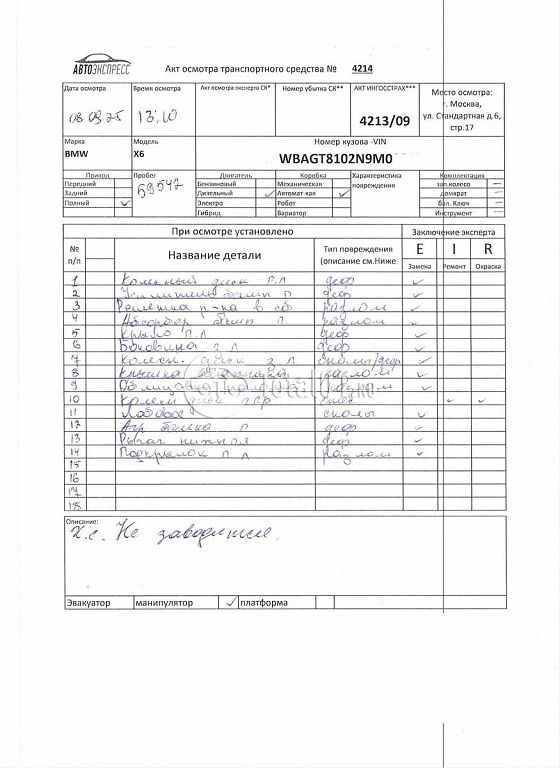 АВТОЭКСПРЕСС
Акт осмотра транспортного средства № 4214
Дата осмотра
Время осмотра
Акт осмотра эксперта СК*
Номер убытка СК**
АКТ ИНГОССТРАХ***
Место осмотра:
г. Москва,
ул. Стандартная д.6,
стр.17
13:10
4213/09
Марка
Модель
Номер кузова -VIN
BMW
X6
WBAGT8102N9M0
Привод
Пробег
Двигатель
Коробка
Характеристика
повреждения
Комплектация
Передний
59547
Бензиновый
Механическая
зап.колесо –
Задний
Дизельный ✓
Автомат-кая ✓
домкрат –
Полный ✓
Электро
Робот
бал. Ключ –
Гибрид
Вариатор
Инструмент –
При осмотре установлено
Заключение эксперта
№
п/п
Название детали
Тип повреждения
(описание см.Ниже
E I R
Замена Ремонт Окраска
1 Колесный диск П.Л деф ✓
2 Усилитель бамп П деф ✓
3 Решетка р-ра в сб разлом ✓
4 Абсорбер бамп П. разлом ✓
5 Крыло П.Л деф ✓
6 Боковина З Л деф ✓
7 Колесн. диск З Л сколы/деф ✓
8 Крышка разлом ✓
9 Облицовка ✓
10 Колесн диск ✓ ✓
11 Лобовое сколы ✓
12 балка П деф ✓
13 Рычаг нижн П.Л деф ✓
14 Подкрылок П Л разлом ✓
15
16
17
18
Описание:
Х.с. Не заводится.
Эвакуатор манипулятор ✓ платформа